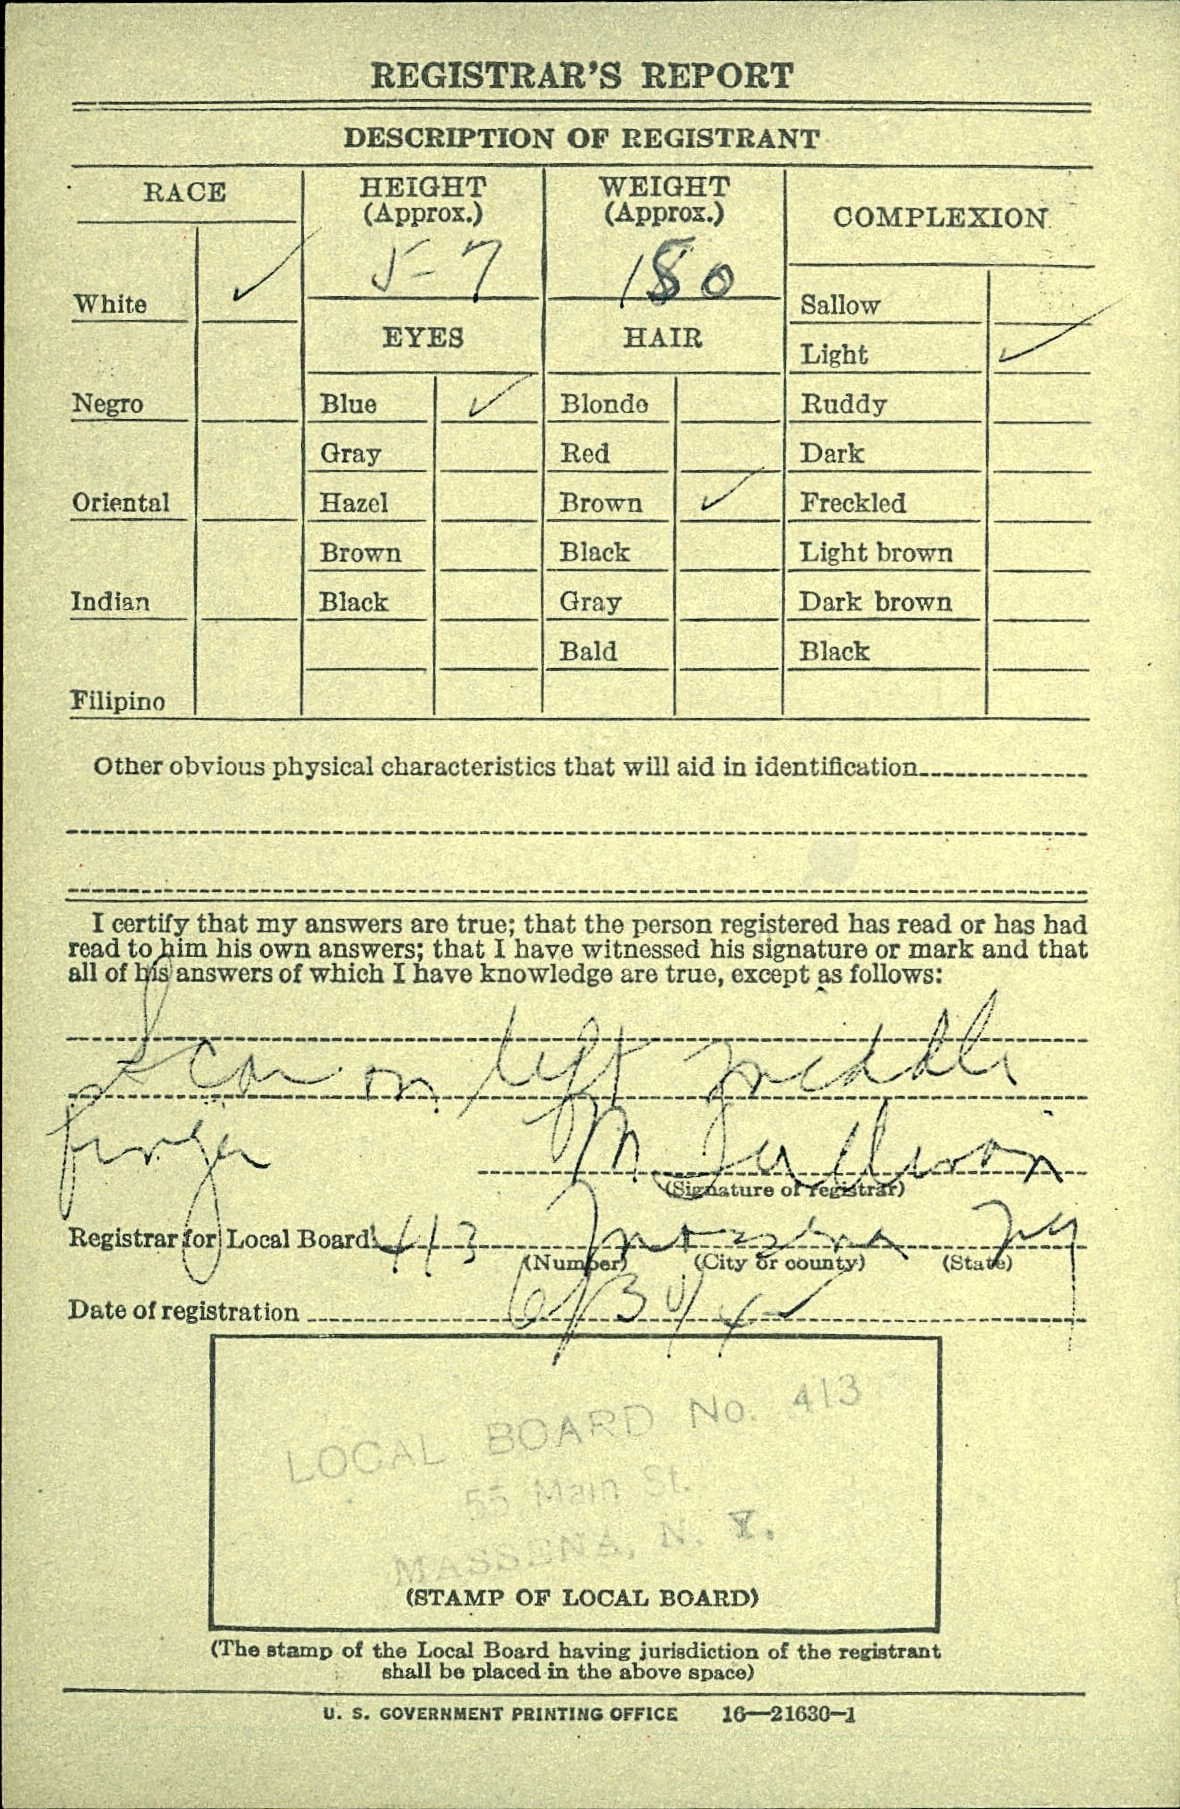 REGISTRAR'S REPORT
DESCRIPTION OF REGISTRANT
RACE
HEIGHT
(Approx.)
WEIGHT
(Approx.)
COMPLEXION
5-7
180
White ✓
EYES
HAIR
Sallow
Light ✓
Negro
Blue ✓
Blonde
Ruddy
Gray
Red
Dark
Oriental
Hazel
Brown ✓
Freckled
Brown
Black
Light brown
Indian
Black
Gray
Dark brown
Bald
Black
Filipino
Other obvious physical characteristics that will aid in identification
I certify that my answers are true; that the person registered has read or has had
read to him his own answers; that I have witnessed his signature or mark and that
all of his answers of which I have knowledge are true, except as follows:
Scar on left middle
finger
M.
(Signature of registrar)
Registrar for Local Board 413 Massena NY
(Number) (City or county) (State)
Date of registration
LOCAL BOARD No. 413
55 Main St.
MASSENA, N. Y.
(STAMP OF LOCAL BOARD)
(The stamp of the Local Board having jurisdiction of the registrant
shall be placed in the above space)
U. S. GOVERNMENT PRINTING OFFICE 16—21630-1